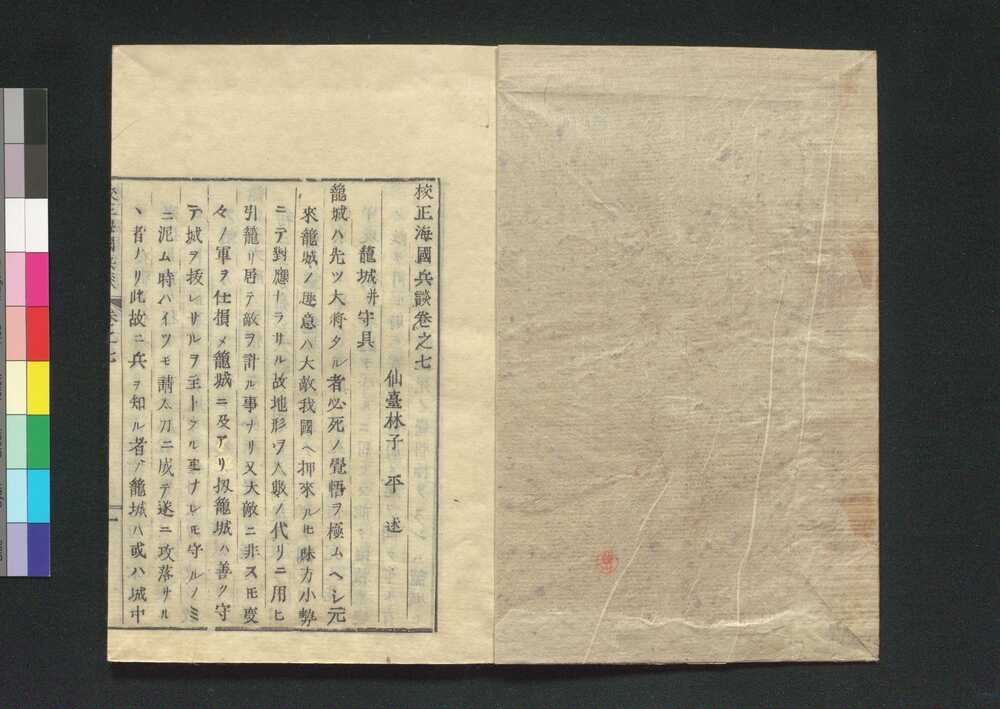 校正海國兵談卷之七
仙臺林子平述
籠城并守具
籠城ハ先ツ大将タル者必死ノ覺悟ヲ極ムヘシ元
來籠城ノ趣意ハ大敵我國ヘ押來ルヒ味方小勢
ニテ對應ナラサル故地形ヲ人数ノ代リニ用ヒ
引籠リ居テ敵ヲ討ル事ナリ又大敵ニ非スモ変
々ノ軍ヲ仕損メ籠城ニ及アリ扨籠城ハ善ク守
テ城ヲ拔レサルヲ主トスル事ナレモ守ルノミ
ニ泥ム時ハイツモ請太刀ニ成テ遂ニ攻落サル
ヽ者ナリ此故ニ兵ヲ知ル者ノ籠城ハ或ハ城中
校正海國兵談 卷之七 一